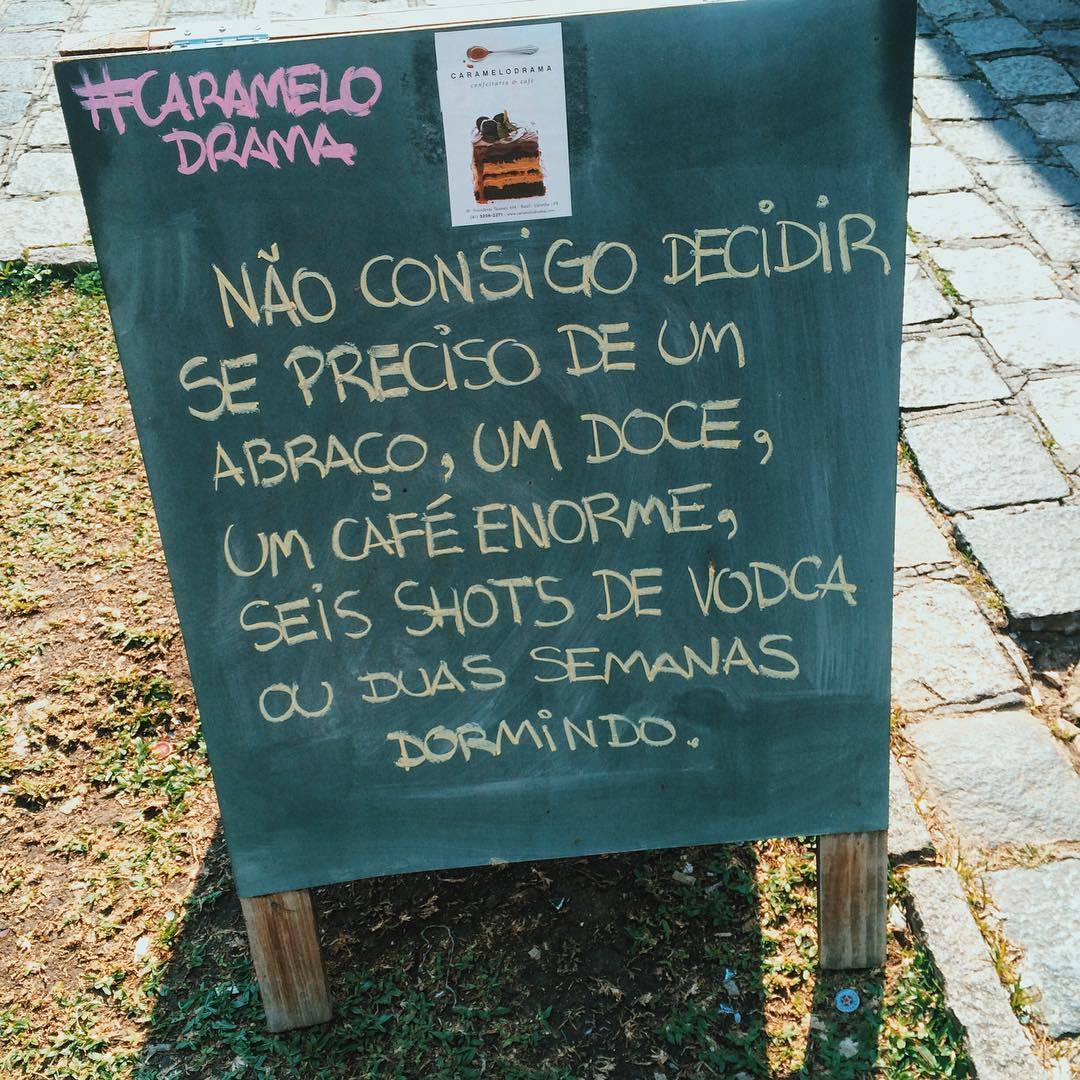 #CARAMELO
DRAMA
CARAMELODRAMA
confeitaria & café
NÃO CONSIGO DECIDIR
SE PRECISO DE UM
ABRAÇO, UM DOCE,
UM CAFÉ ENORME,
SEIS SHOTS DE VODCA
OU DUAS SEMANAS
DORMINDO.